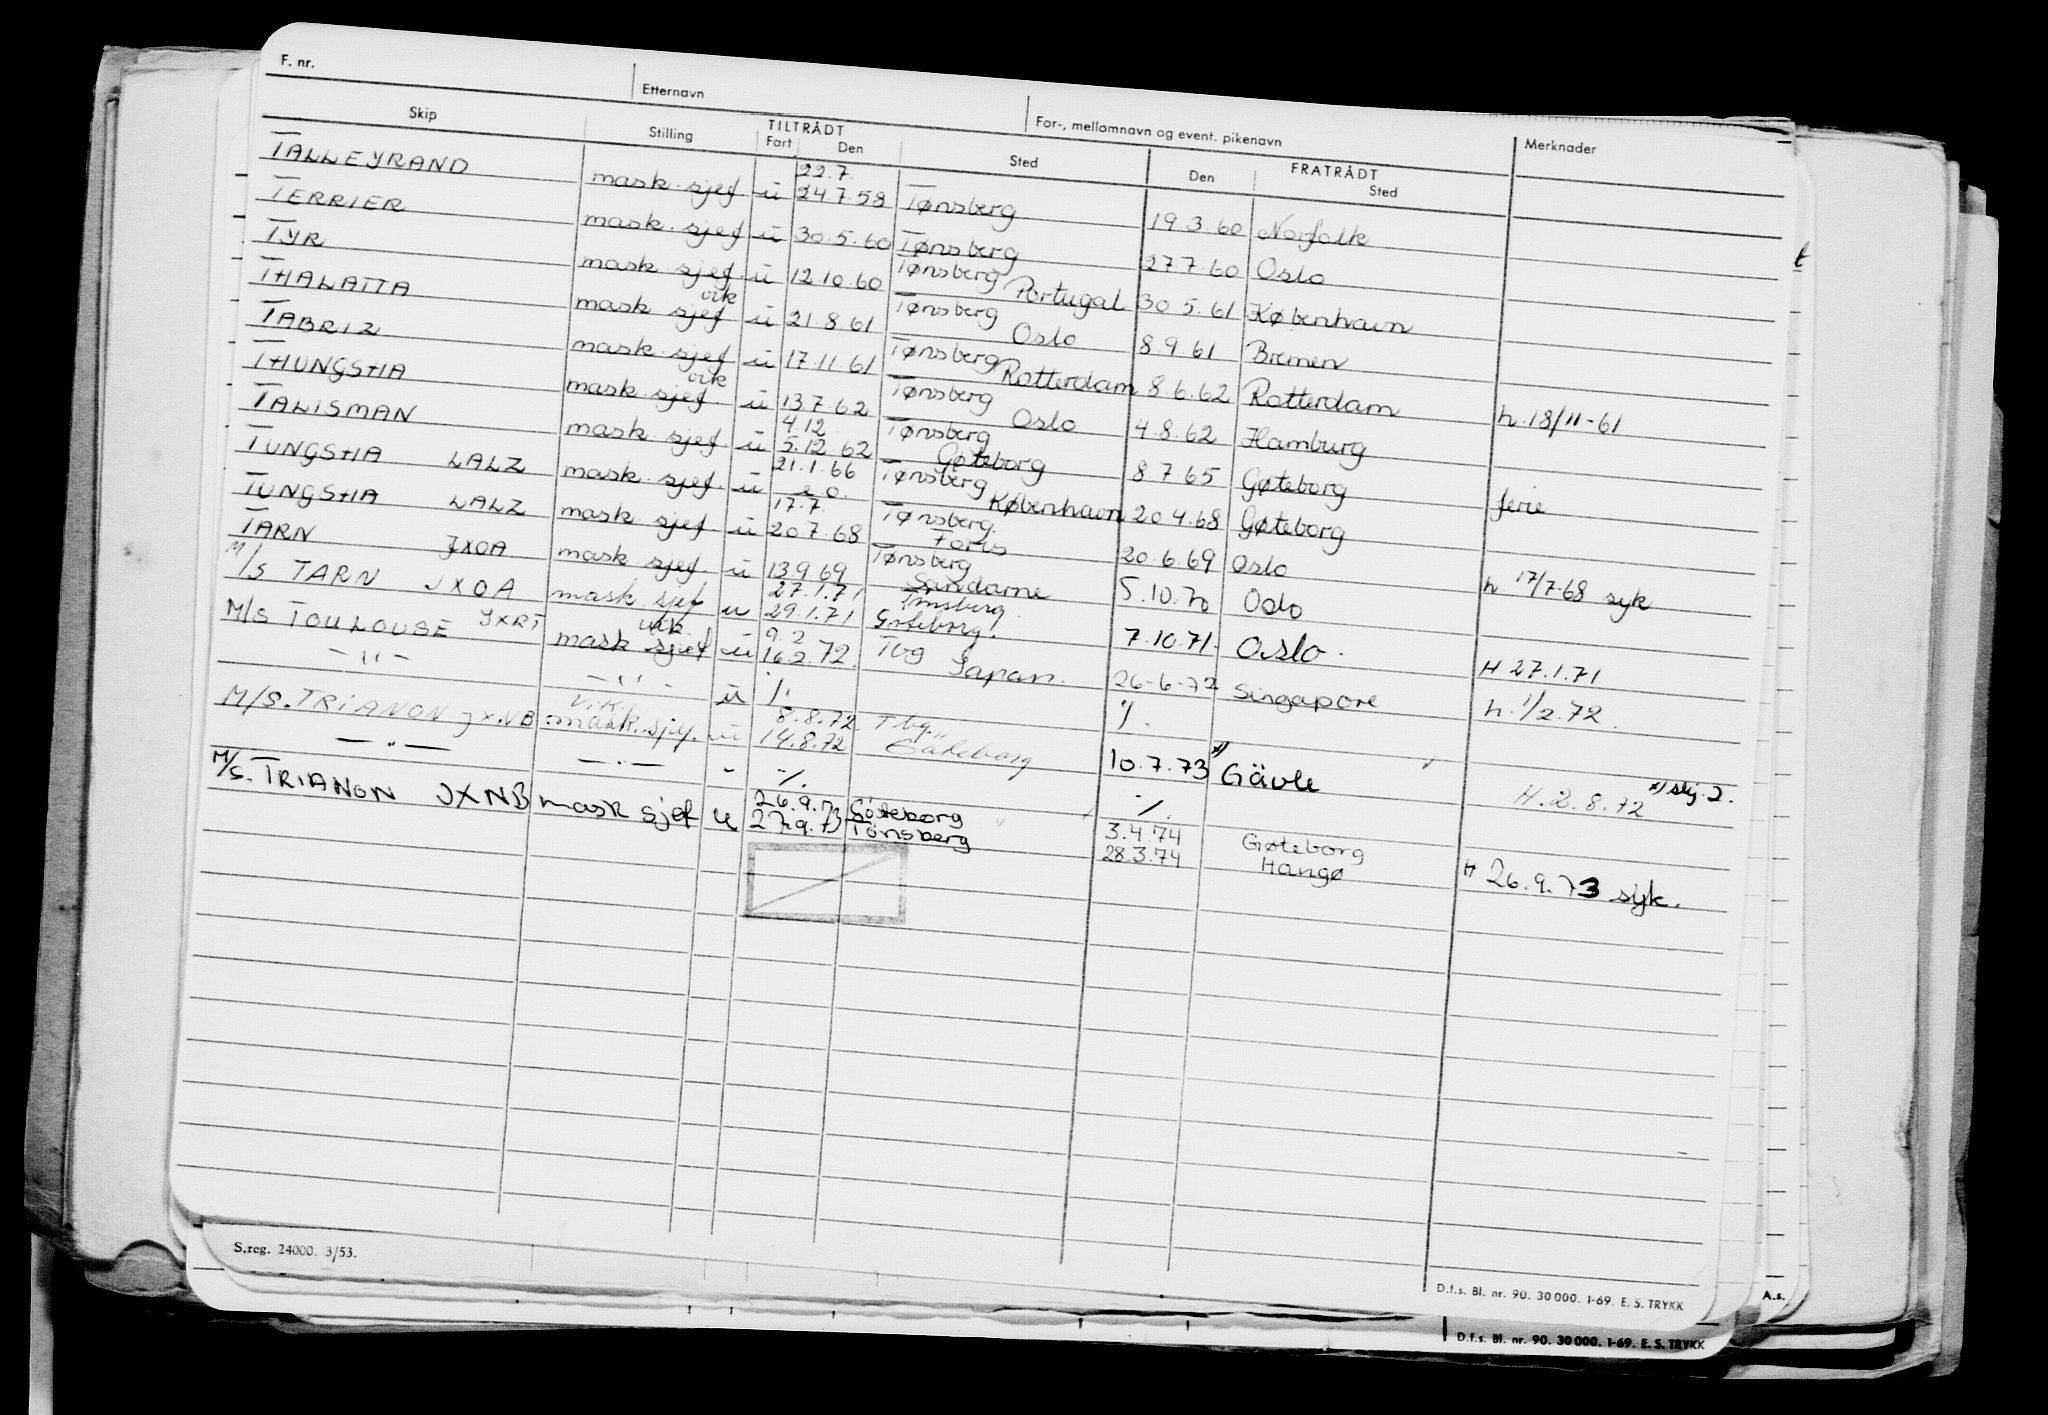 F. nr. Etternavn For-, mellomnavn og event. pikenavn
Skip Stilling TILTRÅDT Fart Den Sted FRATRÅDT Den Sted Merknader
TALLEYRAND mask. sjef u 22.7. 24.7.58 Tønsberg 19.3.60 Norfolk
TERRIER mask. sjef u 30.5.60 Tønsberg 27.7.60 Oslo
TYR mask. sjef u 12.10.60 Tønsberg Portugal 30.5.61 København
THALATTA mask. sjef vik u 21.8.61 Tønsberg Oslo 8.9.61 Bremen
TABRIZ mask. sjef u 17.11.61 Tønsberg Rotterdam 8.6.62 Rotterdam h. 18/11-61
THUNGSHA mask. sjef vik u 13.7.62 Tønsberg Oslo 4.8.62 Hamburg
TALISMAN mask. sjef u 4.12. 5.12.62 Tønsberg Gøteborg 8.7.65 Gøteborg ferie
TUNGSHA LALZ mask. sjef u 21.1.66 e.o. Tønsberg København 20.4.68 Gøteborg
TUNGSHA LALZ mask. sjef u 17.7. 20.7.68 Tønsberg 20.6.69 Oslo h 17/7-68 syk
TARN JXOA mask. sjef u 13.9.69 Tønsberg Sandarne 5.10.70 Oslo
M/S TARN JXOA mask. sjef u 27.1.71 29.1.71 Tønsberg Gøteborg. 7.10.71. Oslo. H 27.1.71
M/S TOULOUSE JXRT mask sjef vik. u 9.2 16.2.72. Tbg Japan. 26-6-72 Singapore h. 1/2.72.
-"- -"- u ./. ./.
M/S. TRIANON JX.NB. V.K. mask. sjef. u 8.8.72 14.8.72 Tbg. Gøteborg 10.7.73 x) Gävle H. 2.8.72 x) stj. 2.
-"- -"- - ./. ./.
M/S. TRIANON JXNB mask sjef u 26.9.73 27.9.73 Gøteborg Tønsberg 3.4.74 28.3.74 Gøteborg Hangø H 26.9.73 syk.
S.reg. 24000. 3/53.
D.f.s. Bl. nr. 90. 30 000. 1-69. E. S. TRYKK
A.s.
D.f.s. Bl. nr. 90. 30 000. 1-69. E. S. TRYKK